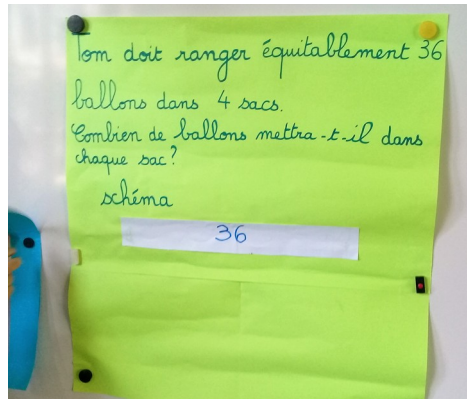 Tom doit ranger équitablement 36
ballons dans 4 sacs.
Combien de ballons mettra-t-il dans
chaque sac?
schéma
36